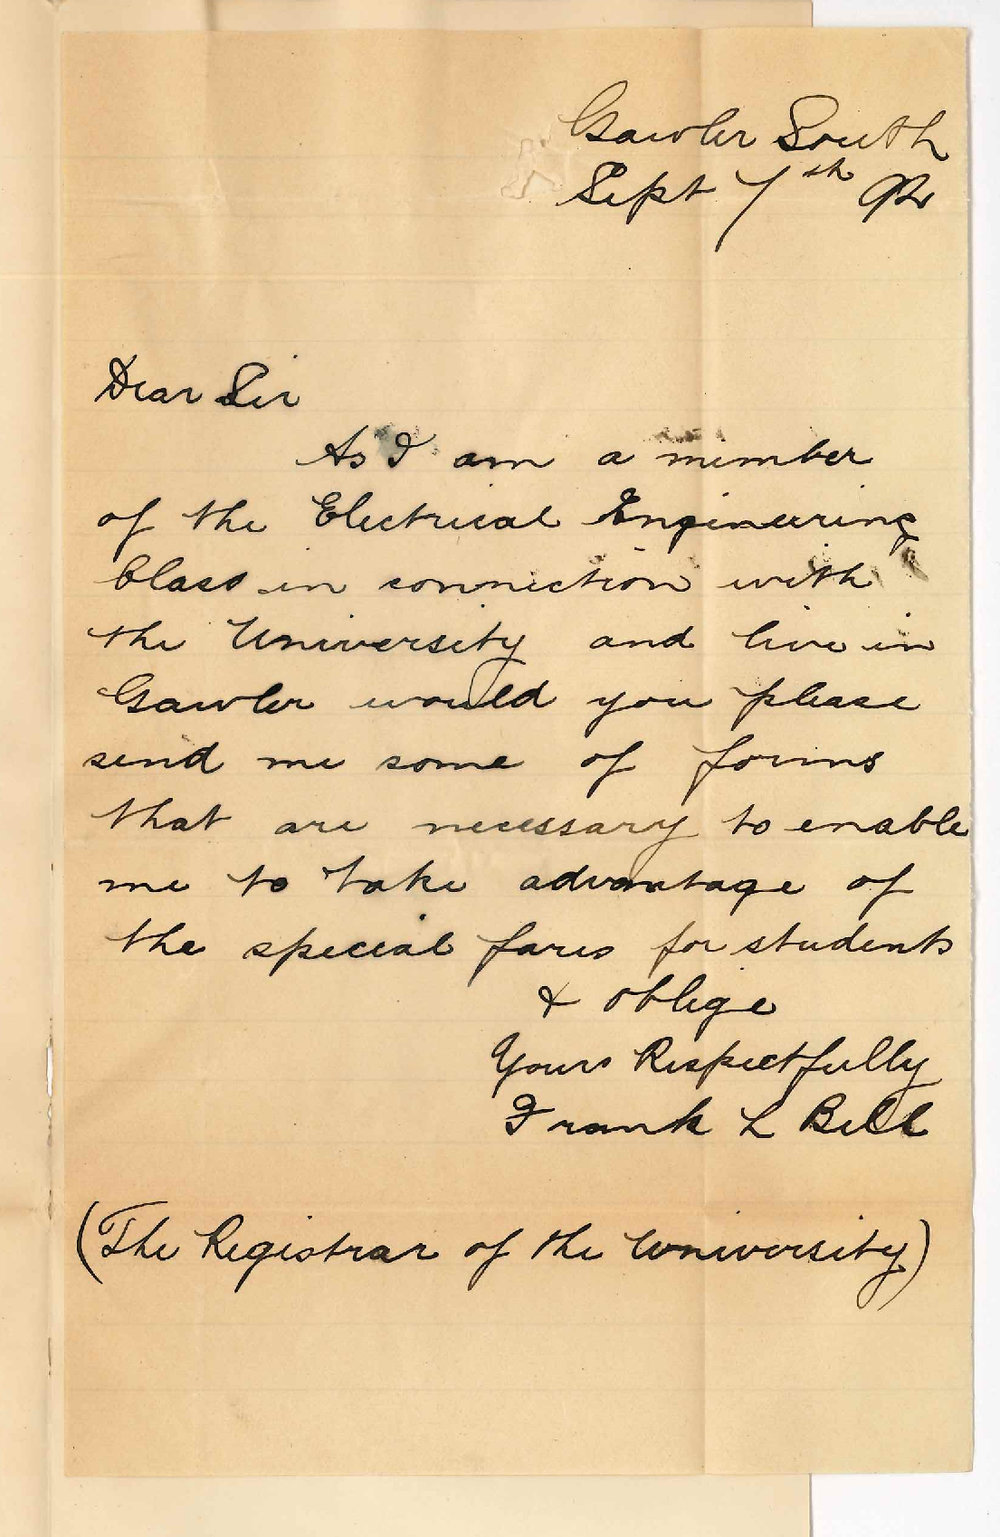 Gawler South
Sept 7th 92
Dear Sir
As I am a member
of the Electrical Engineering
Class in connection with
the University and live in
Gawler would you please
send me some of forms
that are necessary to enable
me to take advantage of
the special fares for students
& oblige
Yours Respectfully
Frank L Bell
(The Registrar of the University)